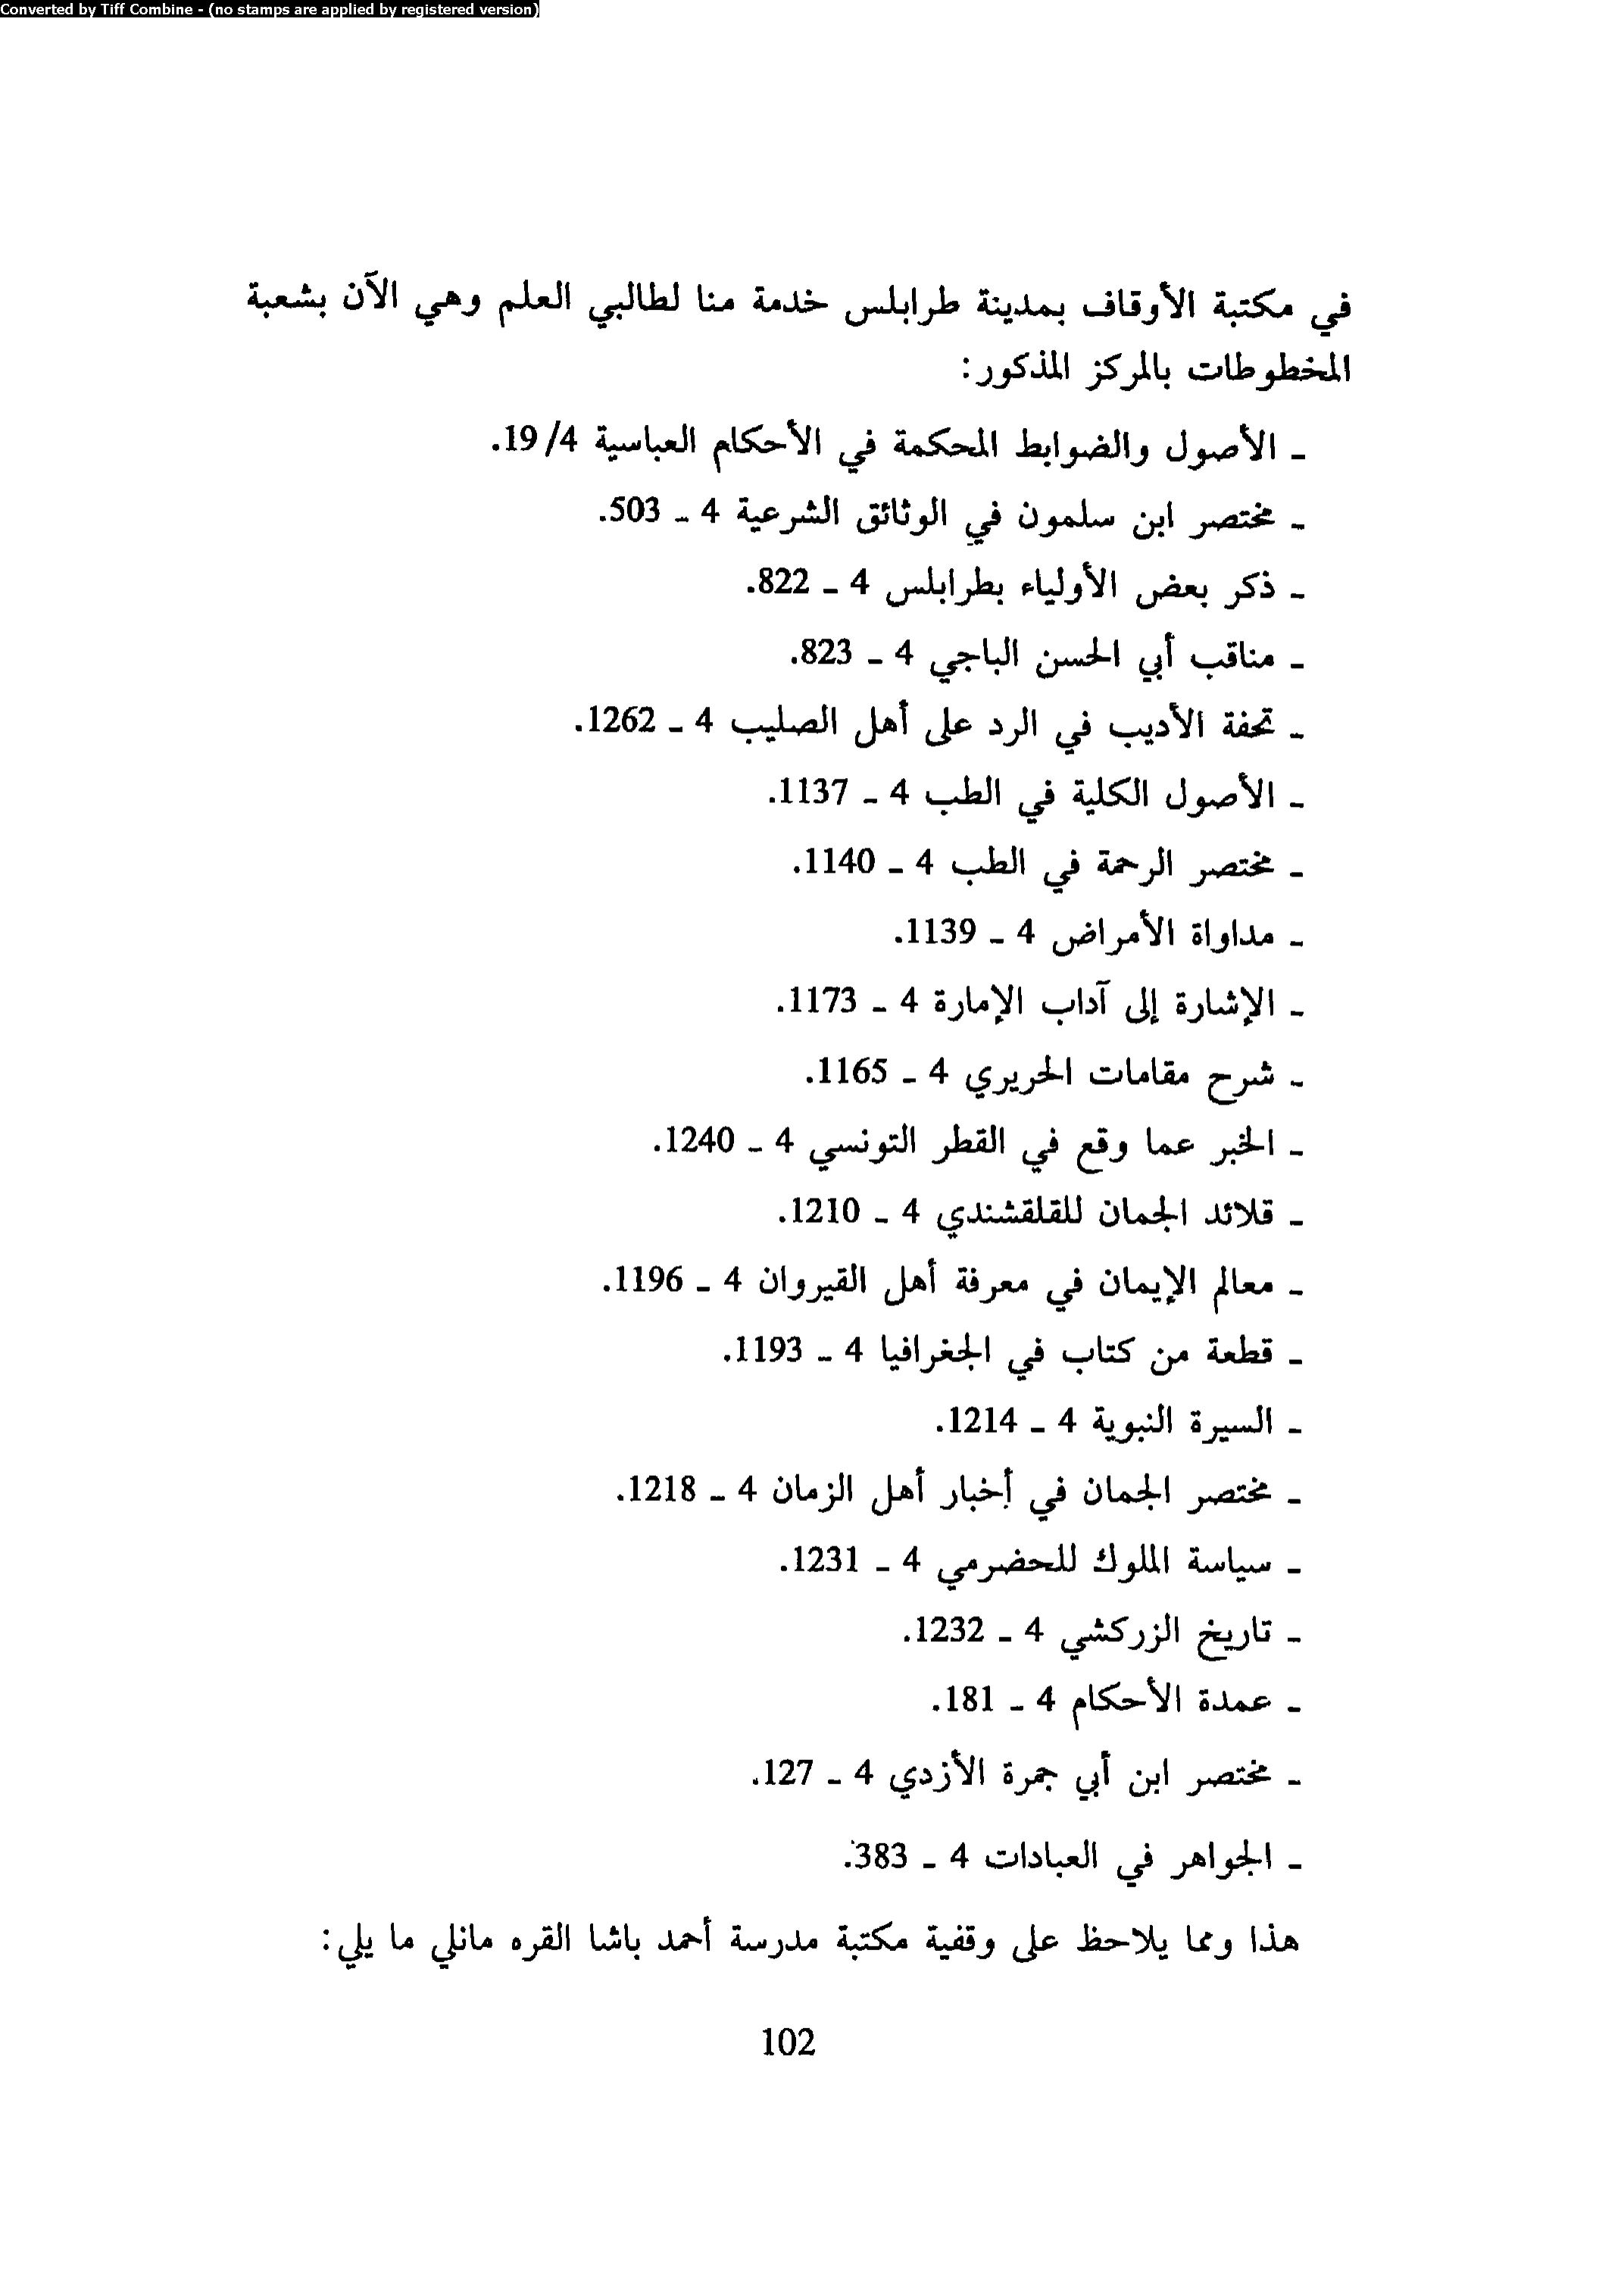 Converted by Tiff Combine - (no stamps are applied by registered version)
في مكتبة الأوقاف بمدينة طرابلس خدمة منا لطالبي العلم وهي الآن بشعبة
المخطوطات بالمركز المذكور:
ـ الأصول والضوابط المحكمة في الأحكام العباسية 19/4.
ـ مختصر ابن سلمون في الوثائق الشرعية 4 ـ 503.
ـ ذكر بعض الأولياء بطرابلس 4 ـ 822.
ـ مناقب أبي الحسن الباجي 4 ـ 823.
ـ تحفة الأديب في الرد على أهل الصليب 4 ـ 1262.
ـ الأصول الكلية في الطب 4 ـ 1137.
ـ مختصر الرحمة في الطب 4 ـ 1140.
ـ مداواة الأمراض 4 ـ 1139.
ـ الإشارة إلى آداب الإمارة 4 ـ 1173.
ـ شرح مقامات الحريري 4 ـ 1165.
ـ الخبر عما وقع في القطر التونسي 4 ـ 1240.
ـ قلائد الجمان للقلقشندي 4 ـ 1210.
ـ معالم الإيمان في معرفة أهل القيروان 4 ـ 1196.
ـ قطعة من كتاب في الجغرافيا 4 ـ 1193.
ـ السيرة النبوية 4 ـ 1214.
ـ مختصر الجمان في أخبار أهل الزمان 4 ـ 1218.
ـ سياسة الملوك للحضرمي 4 ـ 1231.
ـ تاريخ الزركشي 4 ـ 1232.
ـ عمدة الأحكام 4 ـ 181.
ـ مختصر ابن أبي جمرة الأزدي 4 ـ 127.
ـ الجواهر في العبادات 4 ـ 383.
هذا ومما يلاحظ على وقفية مكتبة مدرسة أحمد باشا القره مانلي ما يلي:
102